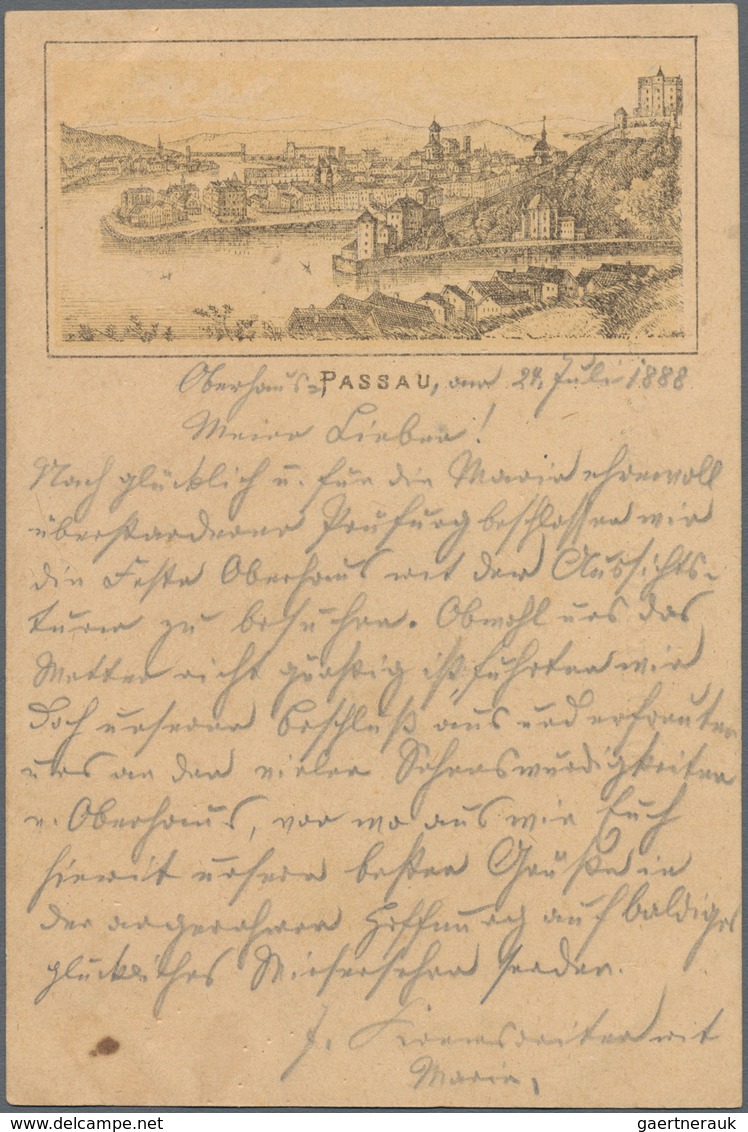 Oberhaus, PASSAU, am 24. Juli 1888
Meine Lieben!
Nach glücklich u. für die Marie ehrenvoll
überstandener Prüfung beschlossen wir
die Feste Oberhaus mit dem Aussichts-
turm zu besuchen. Obwohl uns das
Wetter nicht günstig ist, führten wir
doch unseren Beschluß aus und erfreuten
uns an den vielen Sehenswürdigkeiten
v. Oberhaus, von wo aus wir Euch
hiemit unsere besten Grüße in
der angenehmen Hoffnung auf baldiges
glückliches Wiedersehen senden.
J. mit
Marie.
gaertnerauk